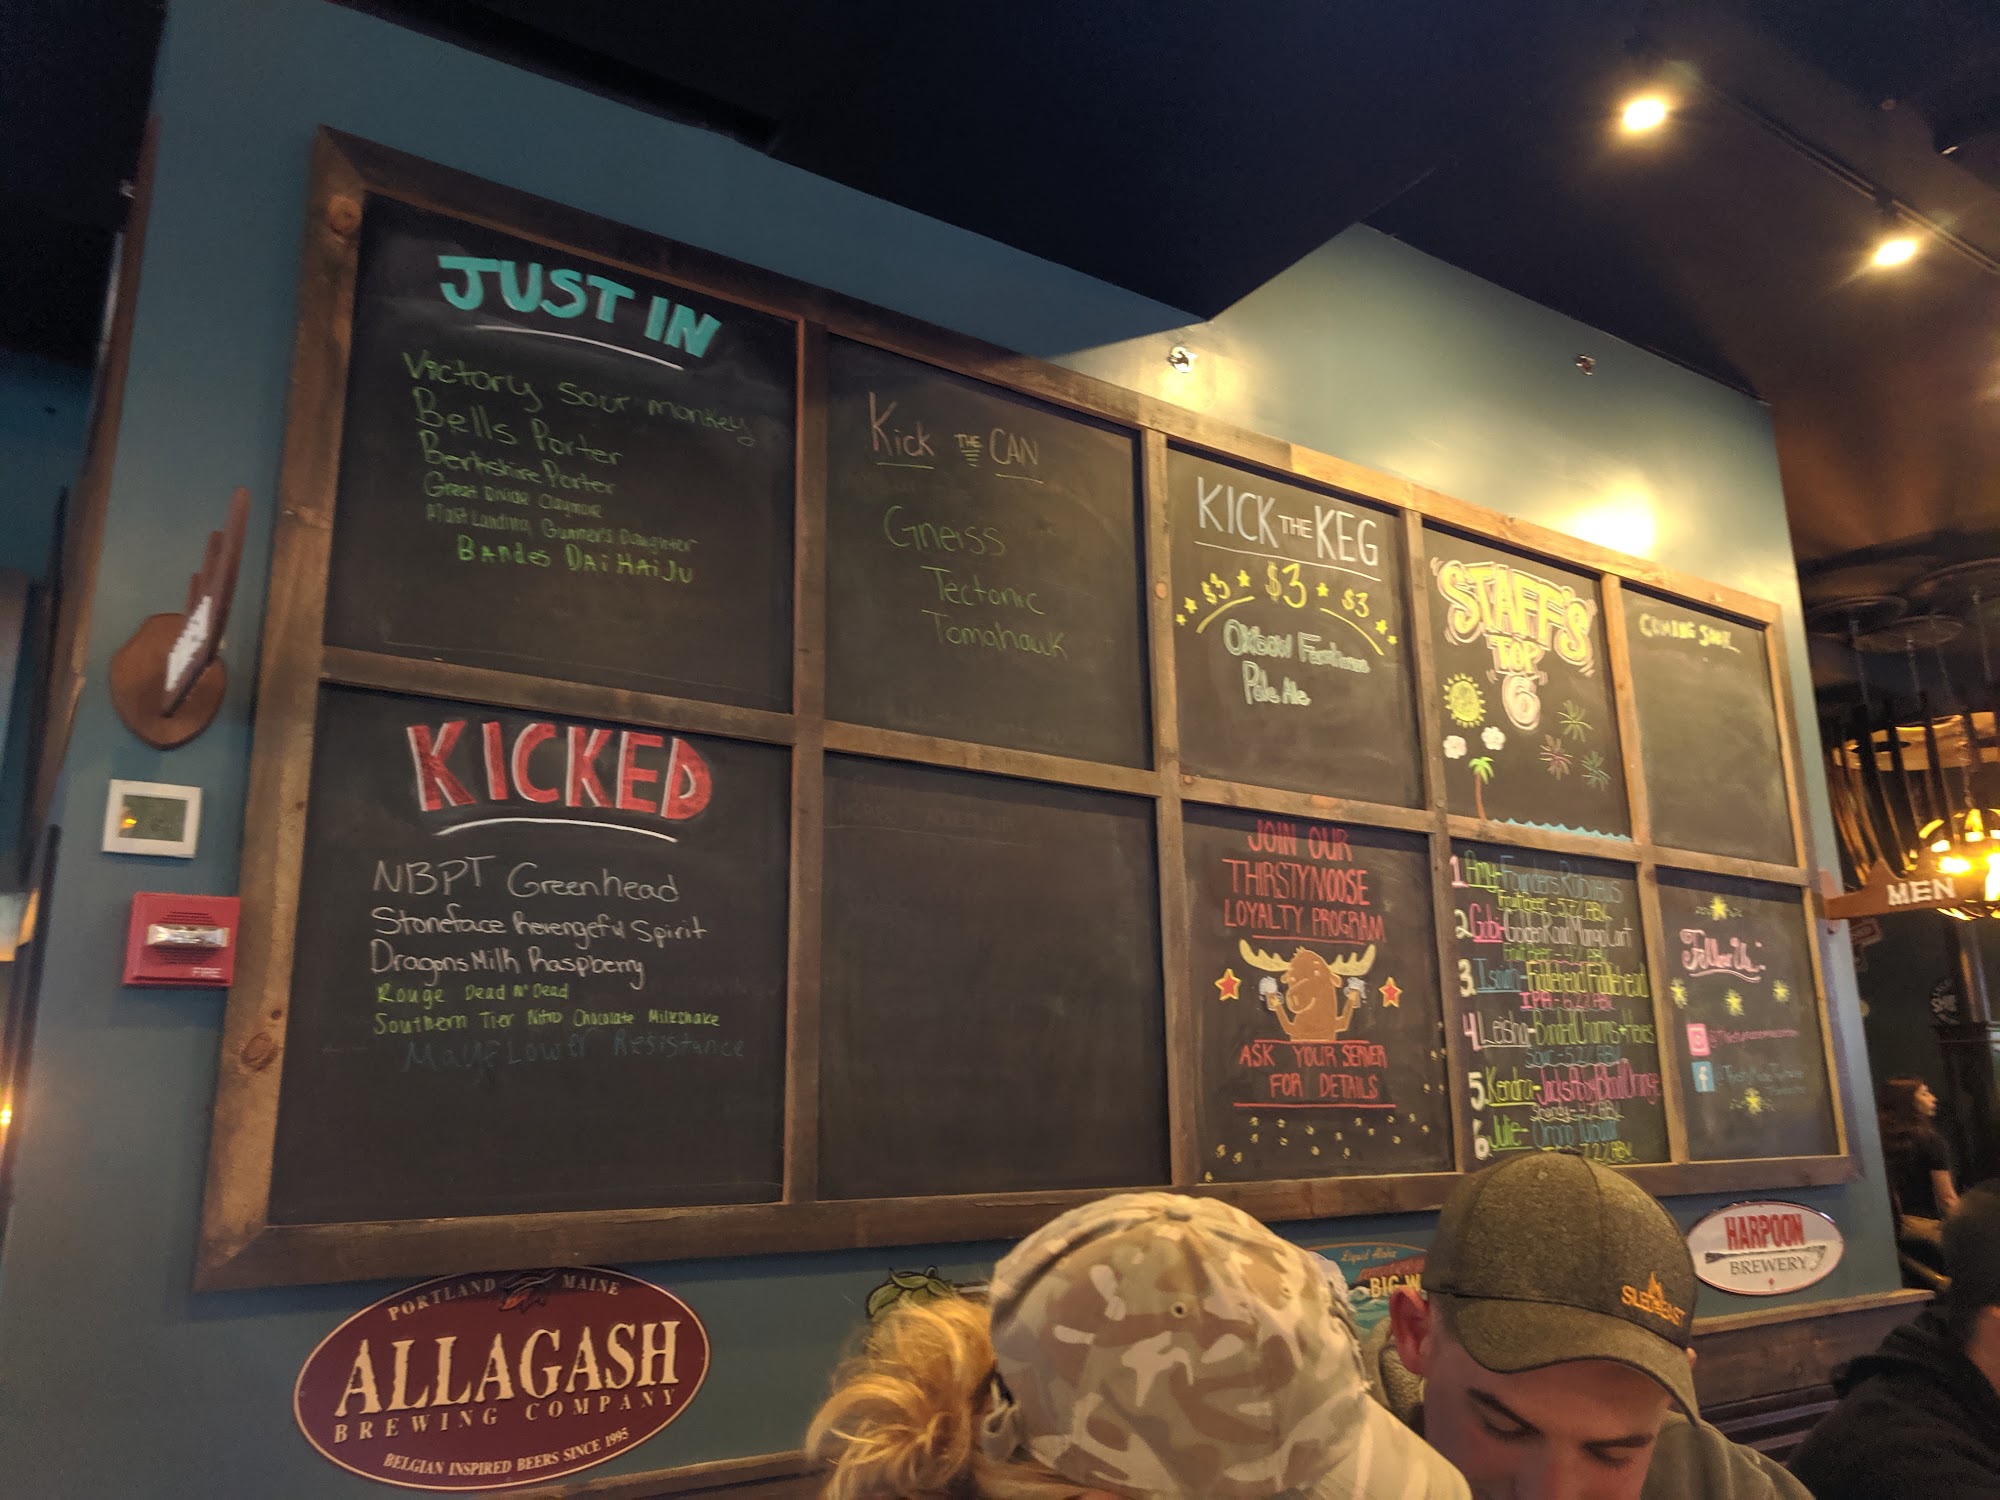 JUST IN
Victory Sour monkey
Bells Porter
Berkshire Porter
Great Divide Claymore
Mast Landing Gunner's Daughter
BANdes DAiHAiJU
KICKED
NBPT Greenhead
Stoneface Revengeful Spirit
Dragons Milk Raspberry
Rouge Dead N' Dead
Southern Tier Nitro Chocolate Milkshake
Mayflower Resistance
Kick THE CAN
Gneiss
Tectonic
Tomahawk
KICK THE KEG
$3 $3 $3
Oxbow Farmhouse
Pale Ale
JOIN OUR
THIRSTYMOOSE
LOYALTY PROGRAM
ASK YOUR SERVER
FOR DETAILS
"STAFF'S"
TOP
"6"
1. Amy- Founders Rubaeus
fruit beer - 5.7% ABV
2. Gabi- Golden Road Mango Cart
fruit beer - 4% ABV
3. Isaiah- Fiddlehead Fiddlehead
IPA - 6.2% ABV
4. Leisha-
Sour - 5.2% ABV
5. Kendra- Jack's Abby Blood Orange
Shandy - 4% ABV
6. Julie- Orono Tubular
7.2% ABV
COMING SOON..
Follow Us
f
MEN
FIRE
PORTLAND MAINE
ALLAGASH
BREWING COMPANY
BELGIAN INSPIRED BEERS SINCE 1995
Liquid Aloha
BIG W
HARPOON
BREWERY
SLED EAST